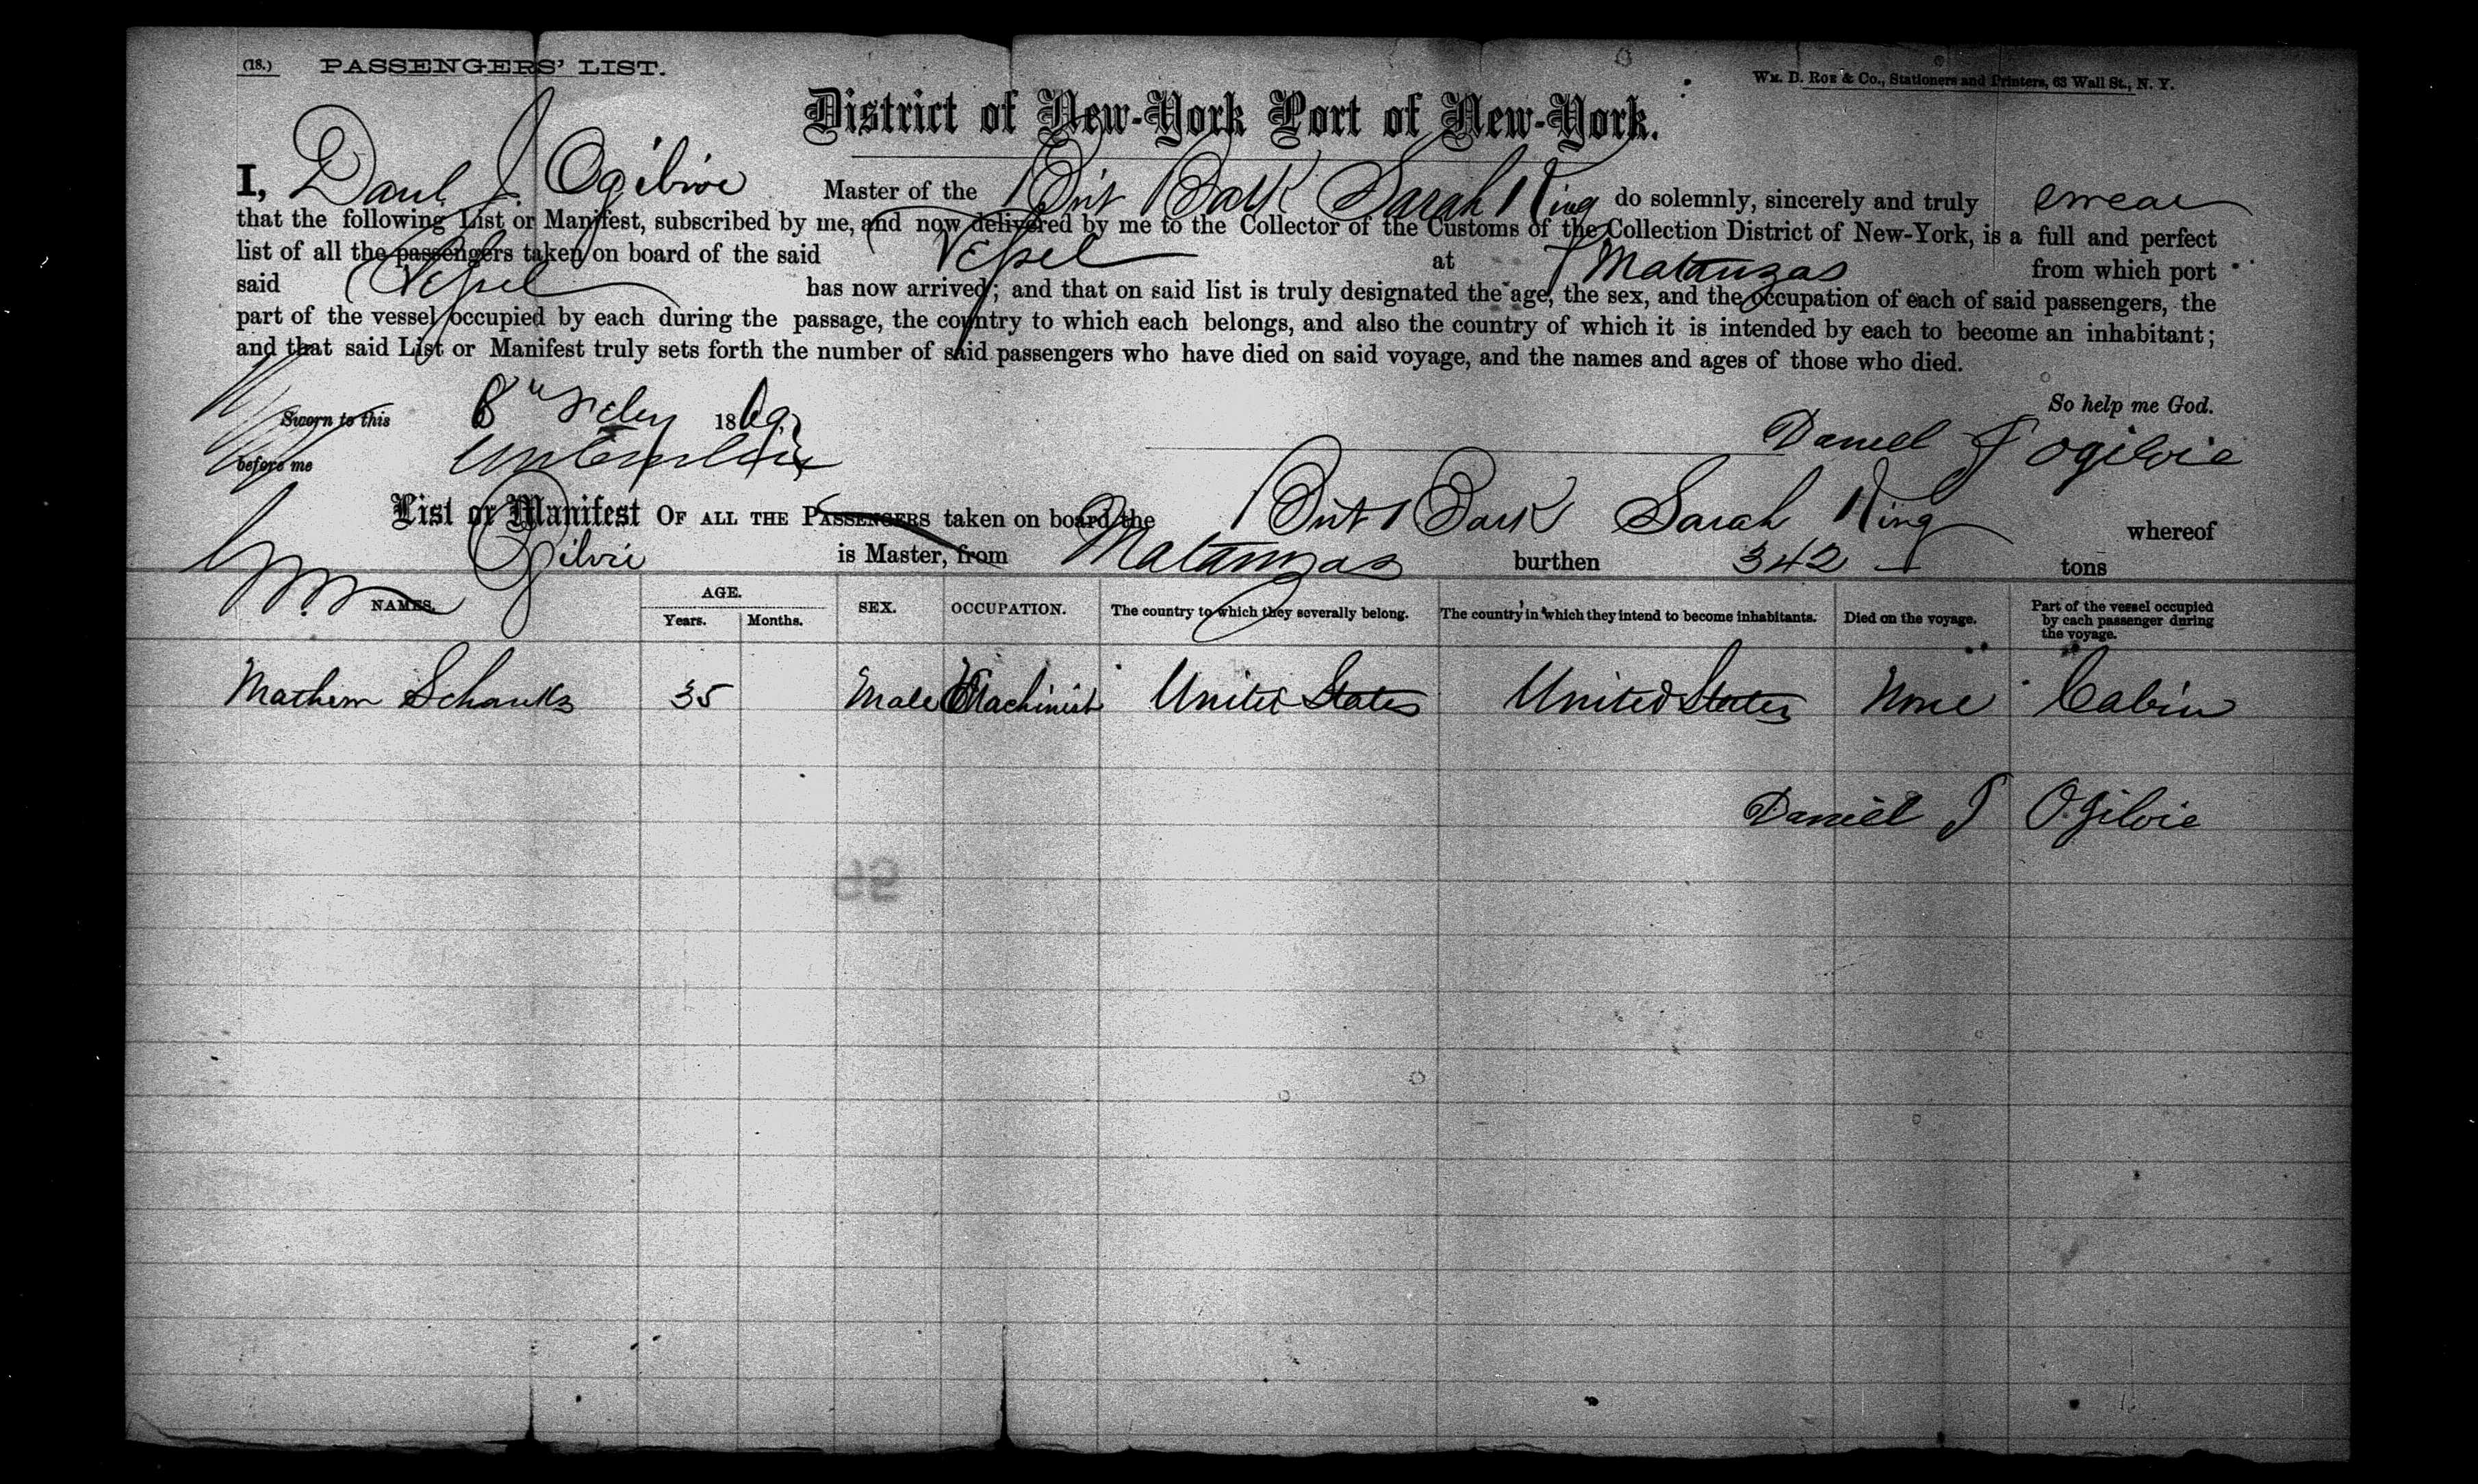 (18.) PASSENGERS' LIST.
Wm. D. Roe & Co., Stationers and Printers, 63 Wall St., N. Y.
District of New-York Port of New-York.
I, Danl. J. Ogilvie Master of the Brit Bark Sarah King do solemnly, sincerely and truly swear
that the following List or Manifest, subscribed by me, and now delivered by me to the Collector of the Customs of the Collection District of New-York, is a full and perfect
list of all the passengers taken on board of the said Vessel at Matanzas from which port
said Vessel has now arrived; and that on said list is truly designated the age, the sex, and the occupation of each of said passengers, the
part of the vessel occupied by each during the passage, the country to which each belongs, and also the country of which it is intended by each to become an inhabitant;
and that said List or Manifest truly sets forth the number of said passengers who have died on said voyage, and the names and ages of those who died.
So help me God.
Sworn to this 8th 1869
Daniel J Ogilvie
before me
List or Manifest OF ALL THE PASSENGERS taken on board the Brit Bark Sarah King whereof
Ogilvie is Master, from Matanzas burthen 342 tons
NAMES. AGE. Years. Months. SEX. OCCUPATION. The country to which they severally belong. The country in which they intend to become inhabitants. Died on the voyage. Part of the vessel occupied by each passenger during the voyage.
Mathew Schanks 35 Male Machinist United States United States None Cabin
Daniel J Ogilvie